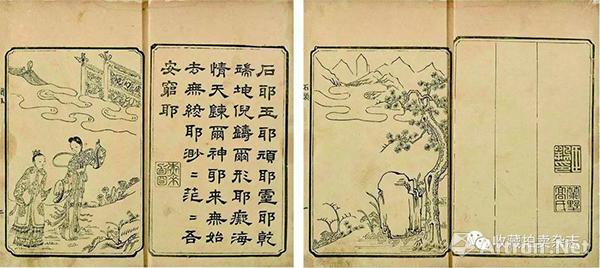 石耶玉耶頑耶靈耶乾
端坤倪鑄爾形耶癡海
情天鍊爾神耶來無始
去無終耶渺〻茫〻吾
安窮耶
收藏拍卖杂志
Artron.Net